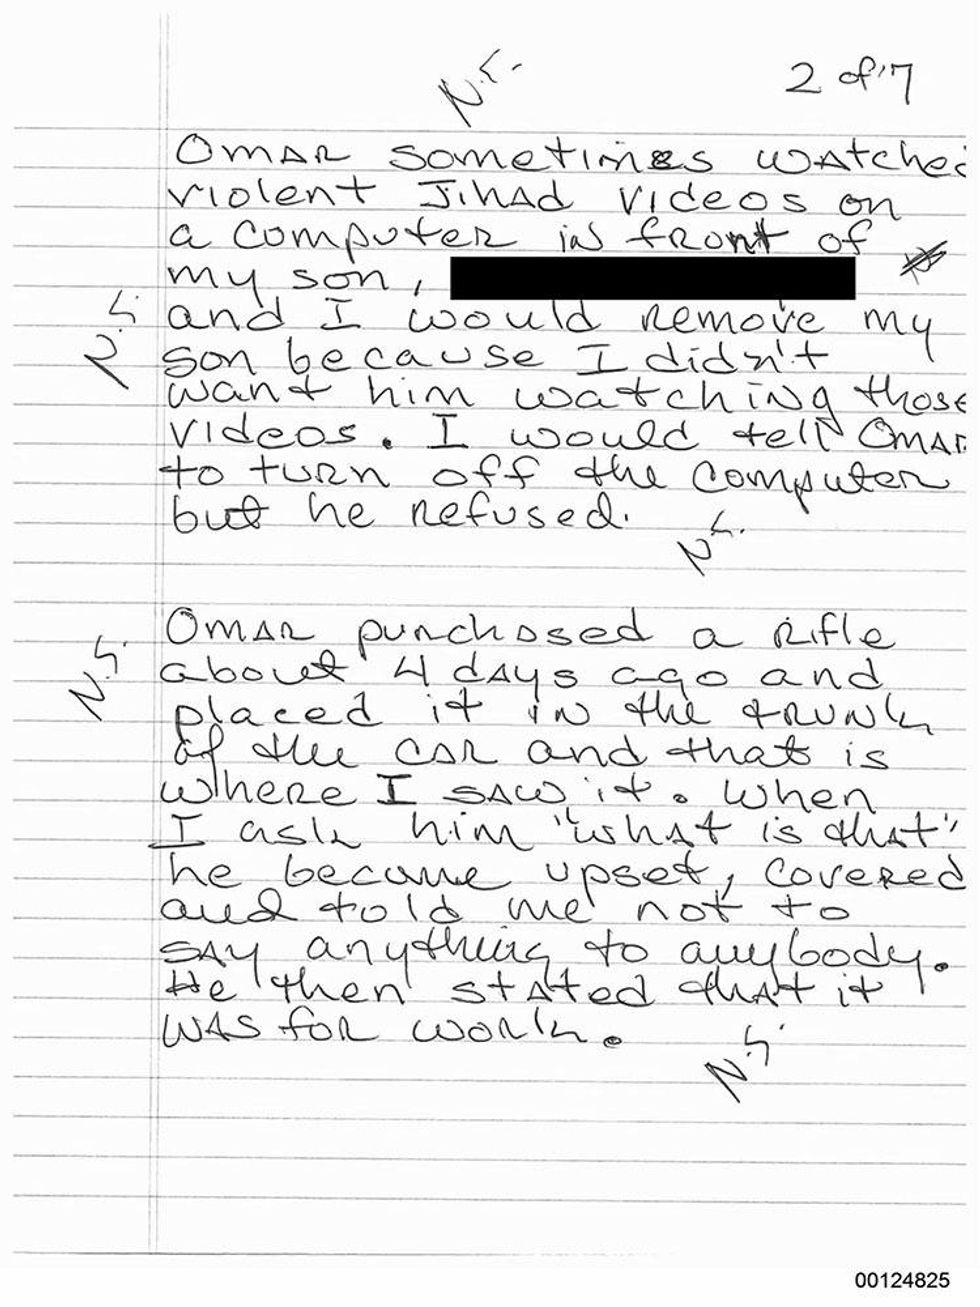 N.S.
2 of 7
OMAR sometimes watched
violent Jihad videos on
a computer in front of
my son,
and I would remove my
N.S.
son because I didn't
want him watching those
videos. I would tell OMAR
to turn off the computer
but he refused.
N.S.
OMAR purchased a rifle
N.S.
about 4 days ago and
placed it in the trunk
of the car and that is
where I saw it. When
I ask him "what is that"
he became upset, covered
and told me not to
say anything to anybody.
He then stated that it
was for work.
N.S.
00124825